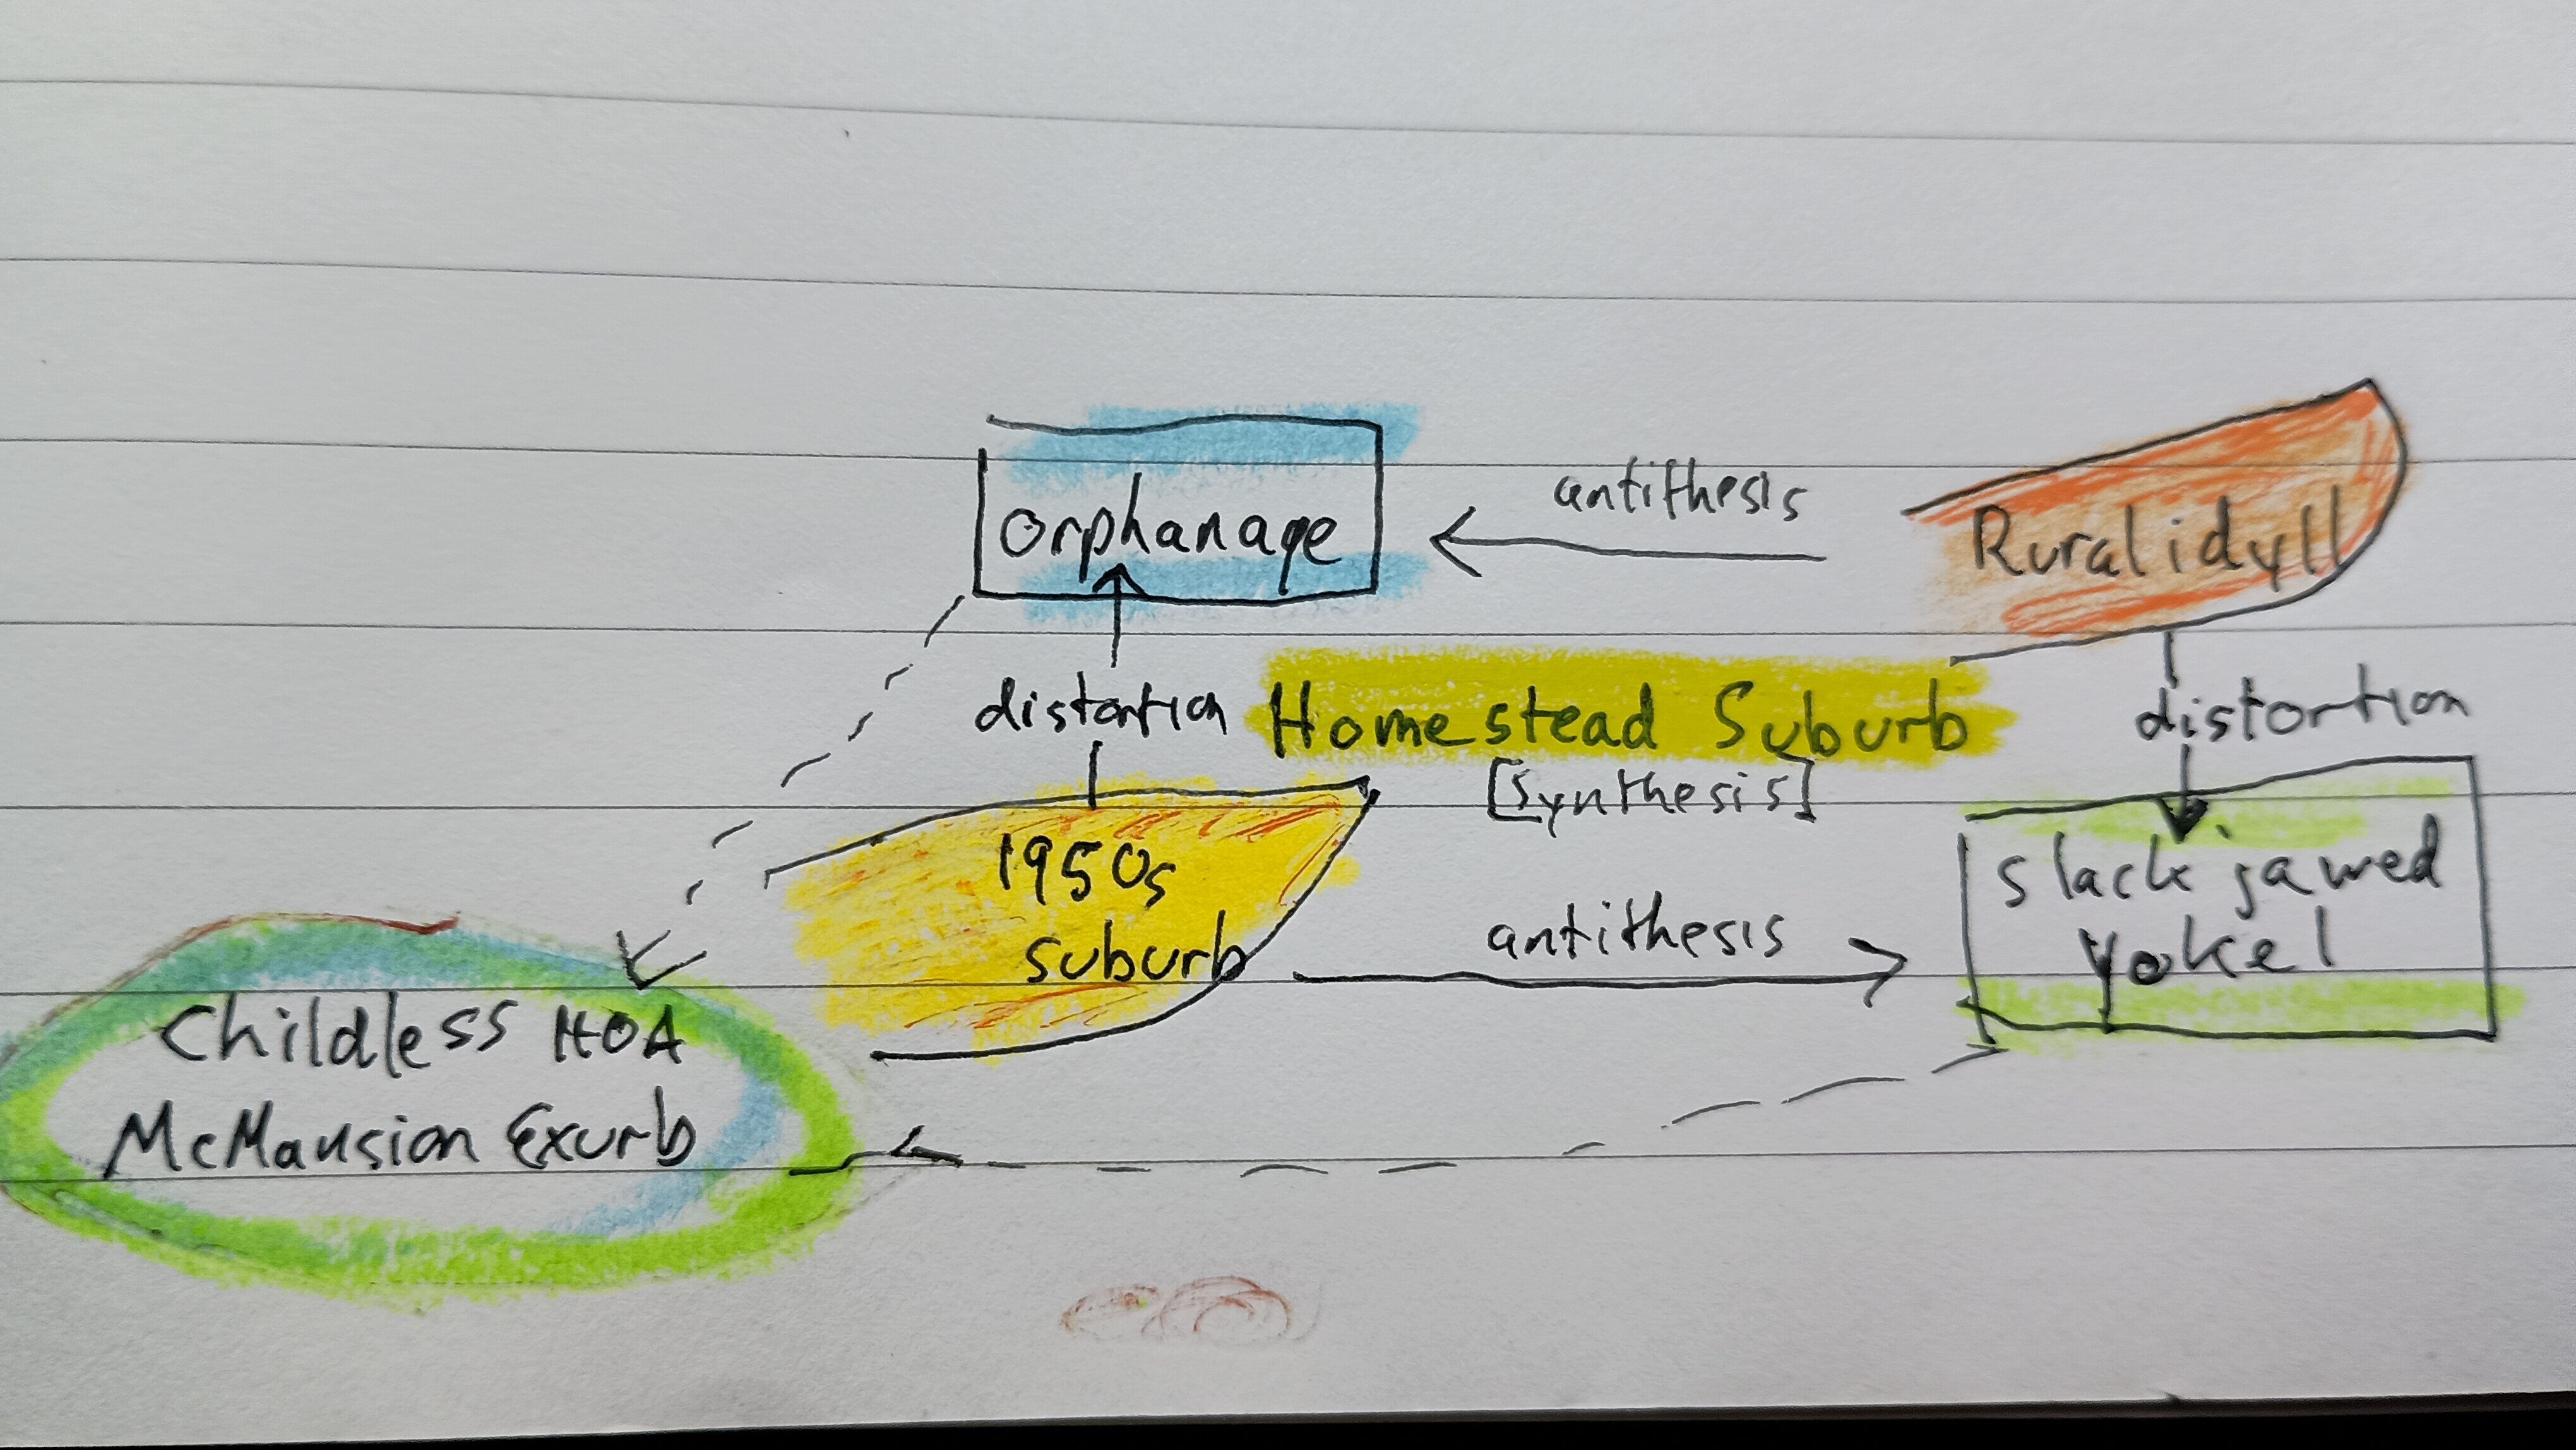 orphanage
antithesis
Rural idyll
distortion
Homestead Suburb
[synthesis]
distortion
1950s
suburb
antithesis
slack jawed
yokel
Childless HOA
McMansion Exurb